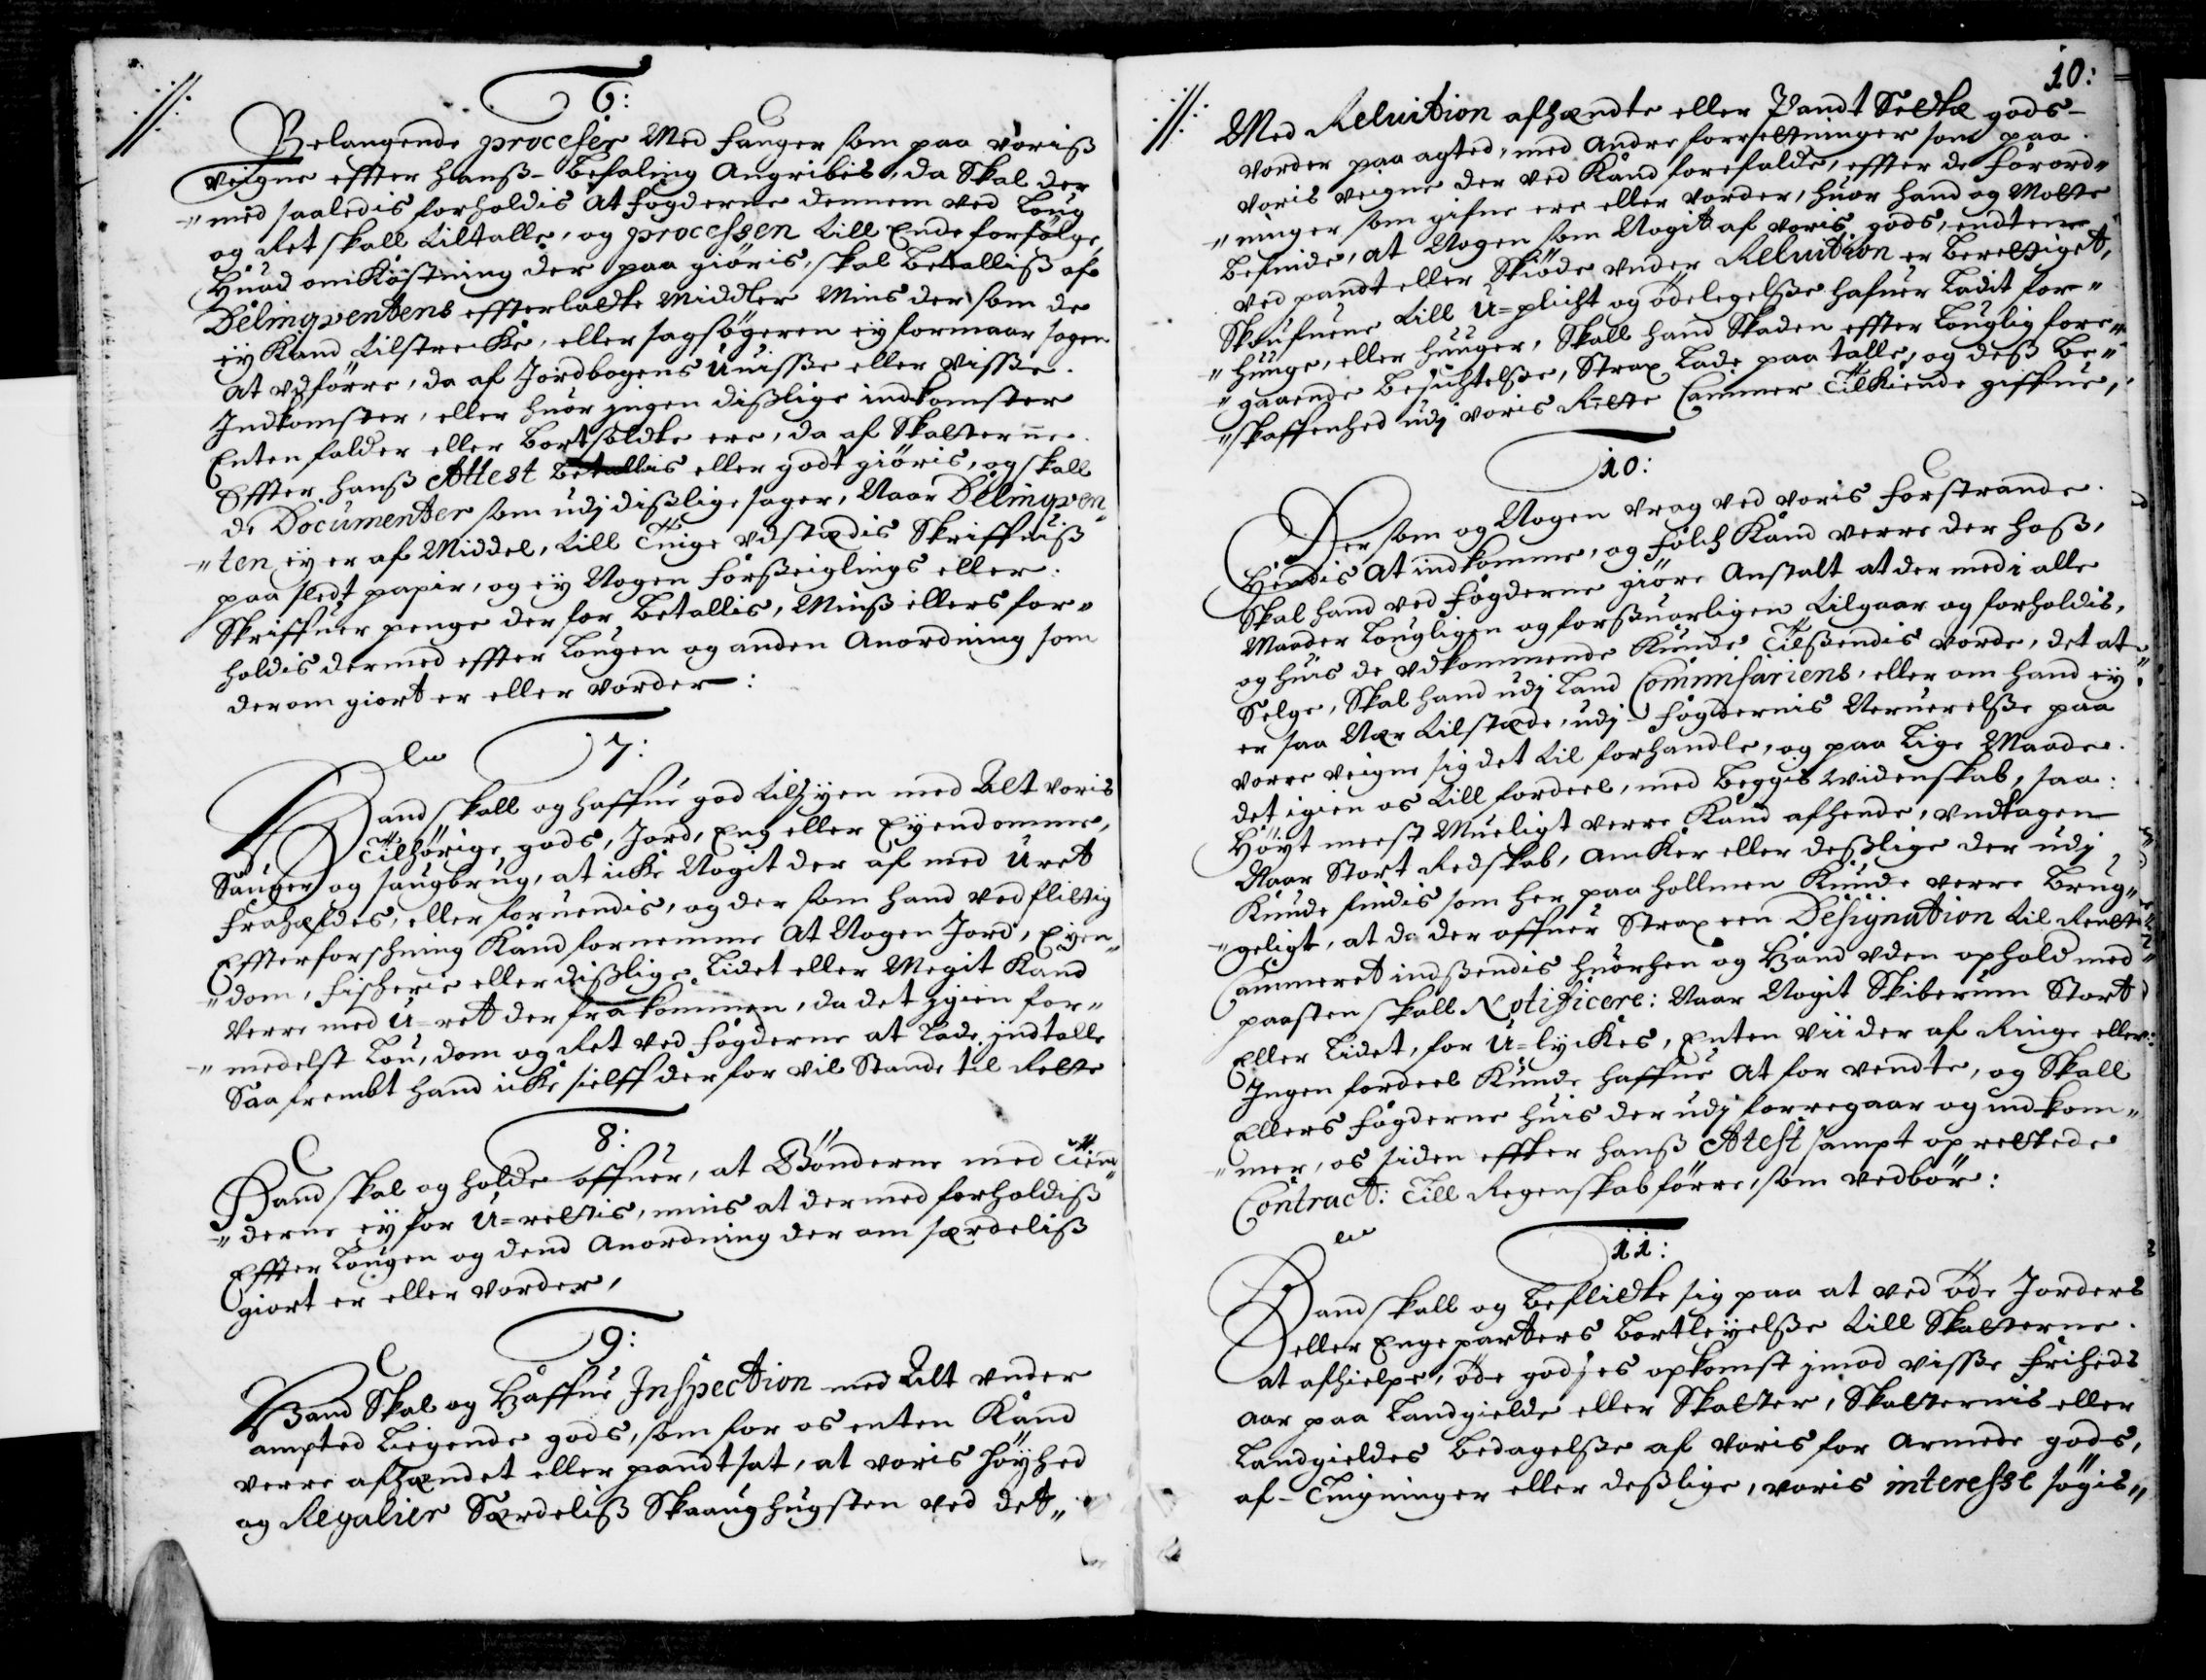 6:
Belangende processer Med fanger som paa voris
Veigne effter hanß Befaling Angribis, da Skal der
med saaledis forholdis At fogderne dennem ved Loug
og Ret skall tiltalle, og processen till Ende forfølge,
Huad omKostning der paa giøris, skal betalliß af
Delinqventens effterladte Middler Mens der som de
ey Kand tilstrecke, eller sagsøgeren ey formaar sagen
At udførre, da af Jordbogens Uuisße eller Visße
Indkomster, eller huor ingen dißlige indkomster
Enten falder eller bortsoldte ere, da af Skatterne
Effter hanß Attest betallis eller godtgiøris, og skall
de Documenter som udj dißlige sager, Naar Delinqven„
„ten ey er af Middel, till Tinge udstædis Skriffuiß
paa sledt papir, og ey Nogen Forßeiglings eller
Skriffuer penge der for betallis, Menß ellers for„
holdis dermed effter Lougen og anden Anordning som
derom giort er eller vorder:
7:
Hand skall og haffue god tilsyen med Alt voris
Tilhørige gods, Jord, Eng eller Eyendomme,
Sauger og saugbrug, at icke Nogit der af med Uret
Frahæfdes, eller foruendis, og der som hand ved flittig
Effterforschning Kand fornemme At Nogen Jord, Eyen„
„dom, fischerie eller dißlige Lidet eller Megit Kand
Verre med U-ret der frakommen, da det igien for„
„medelst Lou, dom og Ret ved fogderne at Lade indtalle
Saafrembt hand icke sielff derfor vil Stande til Rette
8:
Hand skal og holde offuer, at Bønderne med Tien„
„derne ey for U-rettis, mens at dermed forholdiß
Effter Lougen og dend Anordning der om særdeliß
giort er eller vorder,
9:
Hand Skal og Haffue Inspection med Alt under
ampted Liggende gods, som for os enten Kand
verre afhændet eller pandtsat, at voris Høyhed
og Regalier Særdeliß Skaaughugsten ved det„
10:
Med Reluition afhændte eller Pandt Sedtte gods
vorder paa agted, med Andre forretninger som paa
voris veigne der ved Kand forefalde, effter de Forord„
„ninger som gifne ere eller vorder, huor hand og Motte
befinde, at Nogen som Nogit af voris gods, endten
ved pandt eller Skiøde under Reluition er berettiget,
Skoufuene till U-plicht og ødeleggelse hafuer Ladit for„
„hunge, eller hunger, Skall hand Skaden effter Louglig fore„
„gaaende besichtelße, Strax Lade paa talle, og deß be„
„skaffenhed udj voris Rente Cammer Tilkiende giffue,
10:
Der som og Nogen vrag ved voris forstrande
Hændis At indkomme, og Folch Kand verre der hoß,
Skal hand ved fogderne giøre Anstalt at der med i alle
Maader Lougligen og forßuarligen tilgaar og forholdis,
og huis de vdkommende Kunde Tilßendis vorde, det at
Selge, Skal hand udj Land Commisariens, eller om hand ey
er saa Nær tilstæde, udj fogdernis Neruerelße paa
vorre veigne sig det til forhandle, og paa Lige Maade
det igien os till fordeel, med beggis widenskab, saa
Høyt meest Mueligt verre Kand afhende, undtagen
Naar Stort Redskab, Ancker eller deßlige der udj
Kunde findis som her paa Hollmen Kunde verre brug„
„geligt, at da der offuer Strax een Designation til Rente
Cammeret indßendis huorhen og Hand uden ophold med
paasten skall Notificere: Naar Nogit Skiberum Stort
Eller Lidet, for U-lyckes, Enten Vii der af Ringe eller
Ingen fordeel Kunde haffue At for vendte, og Skall
Ellers fogderne huis der udj forregaar og indkom„
„mer, os siden effter hanß Atest sampt oprettede
Contract: Till Regenskab førre, som vedbør:
11:
Hand skall og beflidte sig paa at ved øde Jorders
eller Enge parters bortleyelße till Skatterne
at afhielpe, øde godses opkomst imod visße friheds
aar paa Landgielde eller Skatter, Skatternis eller
Landgieldes bedagelße af voris for Armede gods,
af-Tingninger eller deßlige, voris interesse søgis„